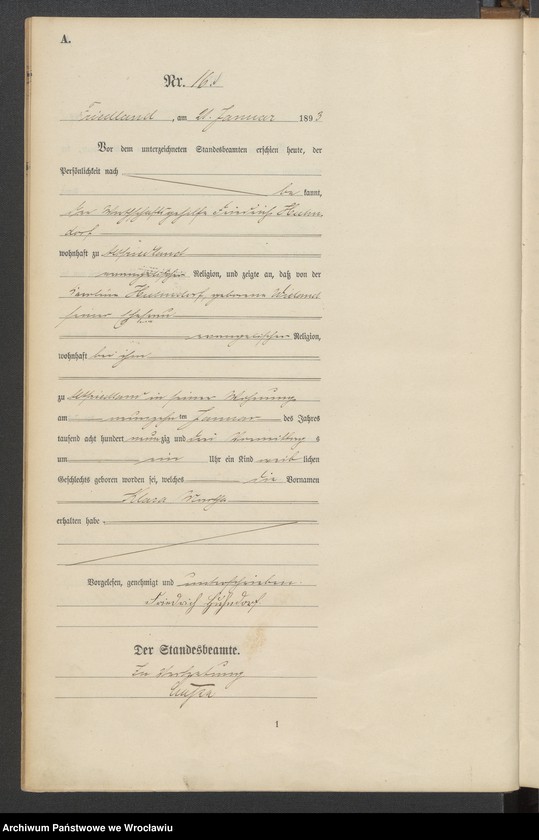 A.
Nr. 16
Friedland, am 21. Januar 1893
Vor dem unterzeichneten Standesbeamten erschien heute, der
Persönlichkeit nach
be kannt,
der Wirthschaftsgehilfe Friedrich Huhn-
dorf
wohnhaft zu Altfriedland
evangelischer Religion, und zeigte an, daß von der
Karoline Huhndorf, geborene Wieland
seiner Ehefrau
evangelischer Religion,
wohnhaft bei ihm
zu Altfriedland in seiner Wohnung
am neunzehn ten Januar des Jahres
tausend acht hundert neun zig und drei Vormittag s
um ein Uhr ein Kind weib lichen
Geschlechts geboren worden sei, welches die Vornamen
Klara
erhalten habe.
Vorgelesen, genehmigt und unterschrieben.
Friedrich Huhndorf
Der Standesbeamte.
In Vertretung
1
Archiwum Państwowe we Wrocławiu